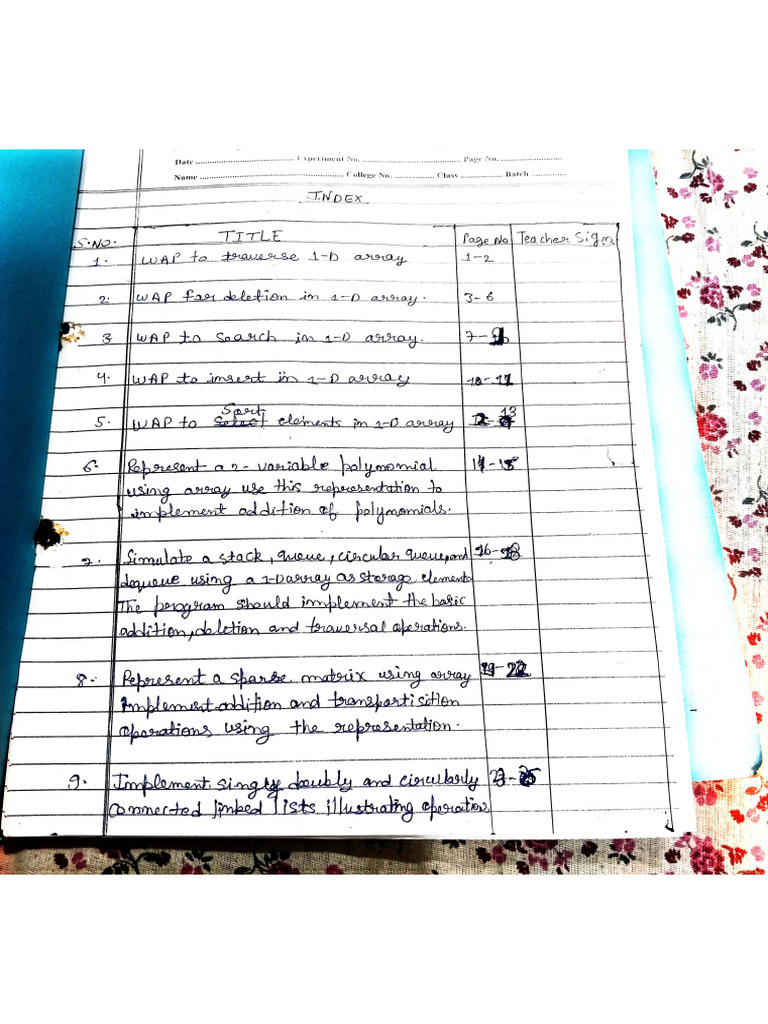 Date Experiment No. Page No.
Name College No. Class Batch
INDEX
S.No. TITLE Page No Teacher Sign
1. WAP to traverse 1-D array 1-2
2. WAP for deletion in 1-D array. 3-6
3 WAP to search in 1-D array. 7-
4. WAP to insert in 1-D array
Sort 13
5. WAP to elements in 1-D array
6. Represent a 2-variable polynomial 14-15
using array use this representation to
implement addition of polynomials.
7. Simulate a stack, queue, circular queue, and 16-18
dequeue using a 1-D array as storage element
The program should implement the basic
addition, deletion and traversal operations.
8. Represent a sparse matrix using array 19-22
Implement addition and
operations using the representation.
9. Implement singly doubly and circularly
connected linked lists illustrating operation